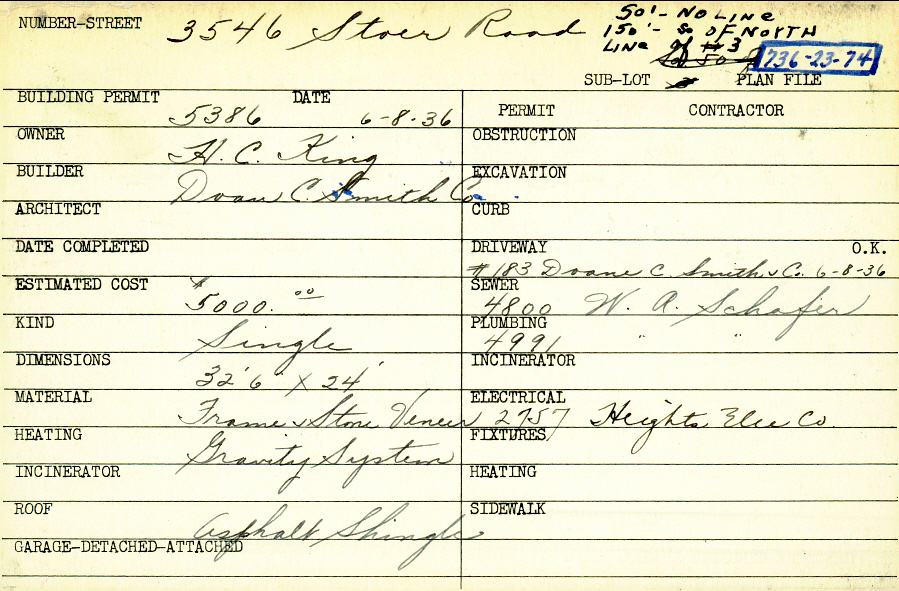 NUMBER-STREET 3546 Stoer Road
50'- NO LINE
150'- SO OF NORTH
LINE of #3
736-23-74
SUB-LOT PLAN FILE
BUILDING PERMIT 5386 DATE 6-8-36
OWNER H. C. King
BUILDER Doan C. Smith Co.
ARCHITECT
DATE COMPLETED
ESTIMATED COST $5000.00
KIND Single
DIMENSIONS 32'6" X 24'
MATERIAL Frame & Stone Veneer
HEATING Gravity System
INCINERATOR
ROOF Asphalt Shingle
GARAGE-DETACHED-ATTACHED
PERMIT CONTRACTOR
OBSTRUCTION
EXCAVATION
CURB
DRIVEWAY O.K.
#183 Doane C. Smith & Co. 6-8-36
SEWER 4800 W. A. Schafer
PLUMBING 4991 " "
INCINERATOR
ELECTRICAL 2757 Heights Elec Co.
FIXTURES
HEATING
SIDEWALK